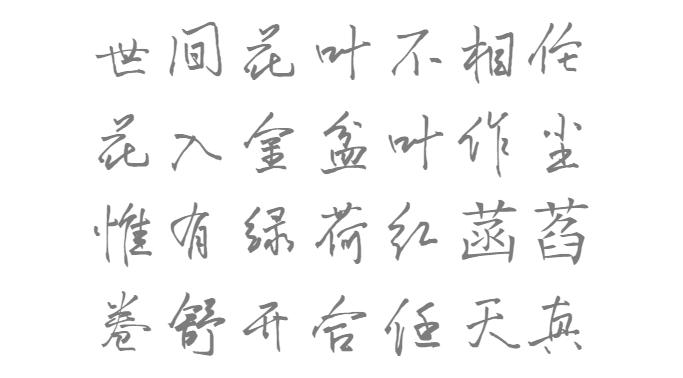 世间花叶不相伦
花入金盆叶作尘
惟有绿荷红菡萏
卷舒开合任天真